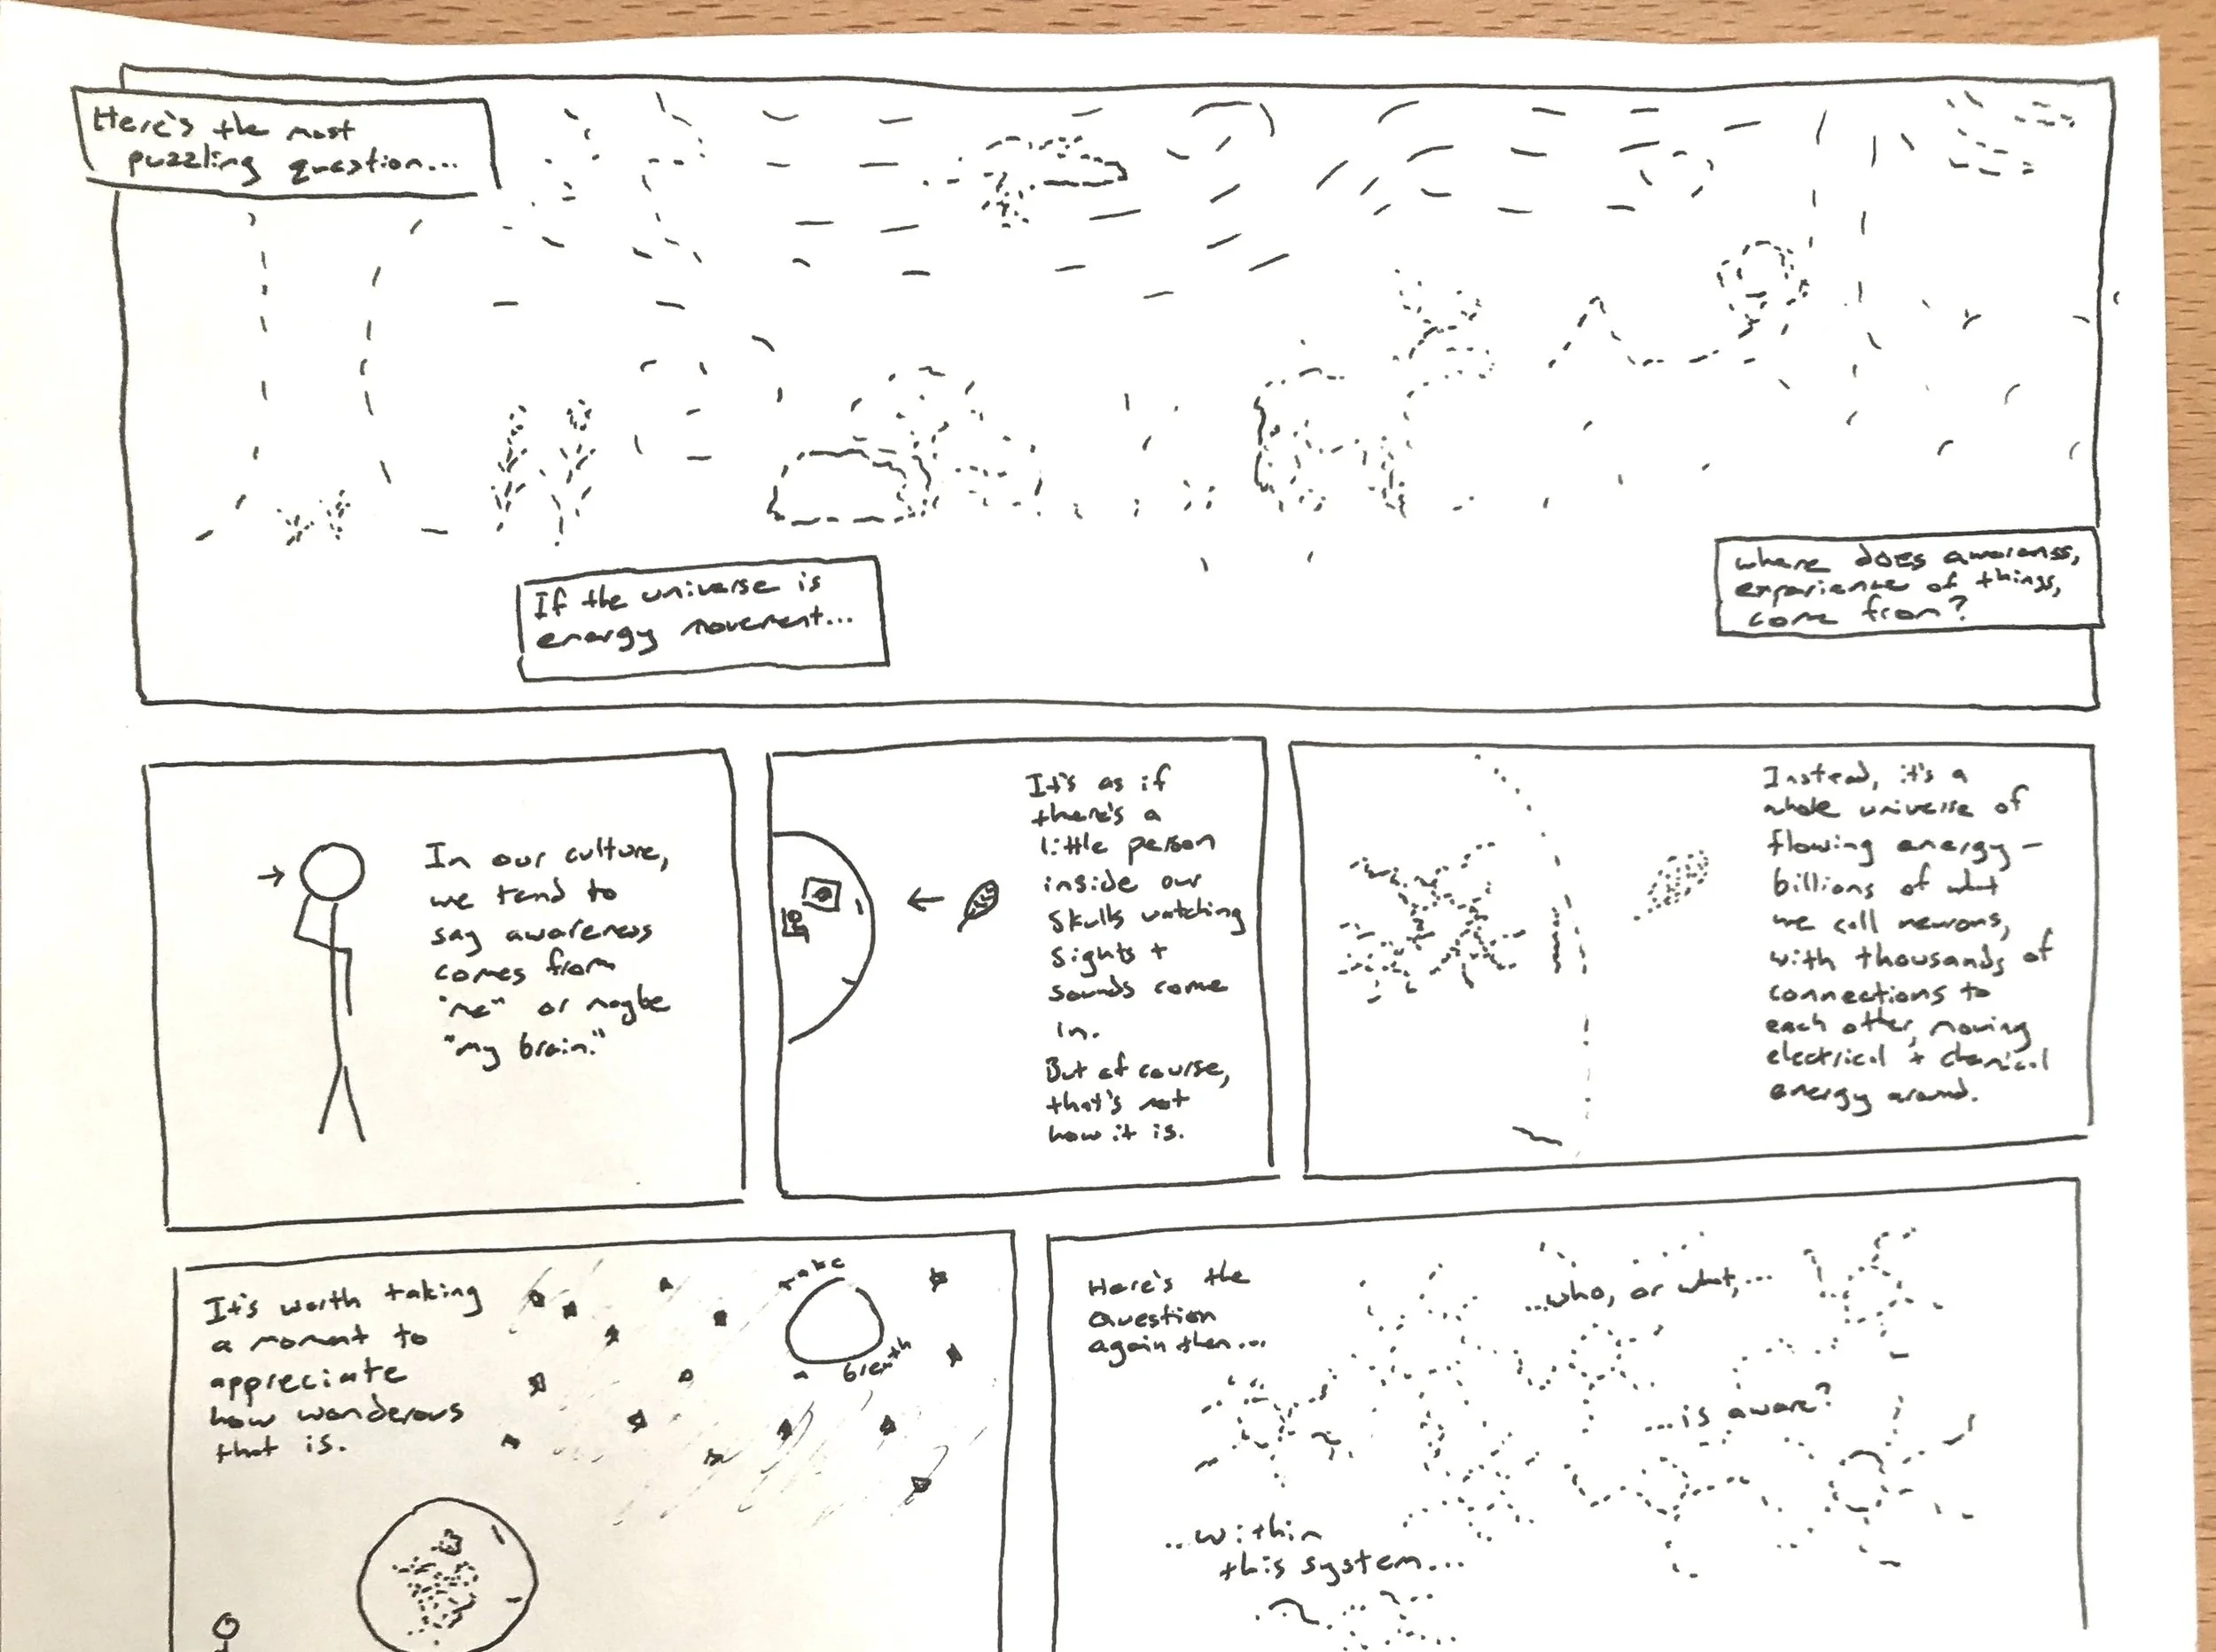 Here's the most
puzzling question...
If the universe is
energy movement...
where does awareness,
experience of things,
come from?
In our culture,
we tend to
say awareness
comes from
"me" or maybe
"my brain."
It's as if
there's a
little person
inside our
skulls watching
sights +
sounds come
in.
But of course,
that's not
how it is.
Instead, it's a
whole universe of
flowing energy—
billions of what
we call neurons,
with thousands of
connections to
each other, moving
electrical + chemical
energy around.
It's worth taking
a moment to
appreciate
how wonderous
that is.
take
a breath
Here's the
question
again then...
...who, or what,...
...is aware?
...within
this system...